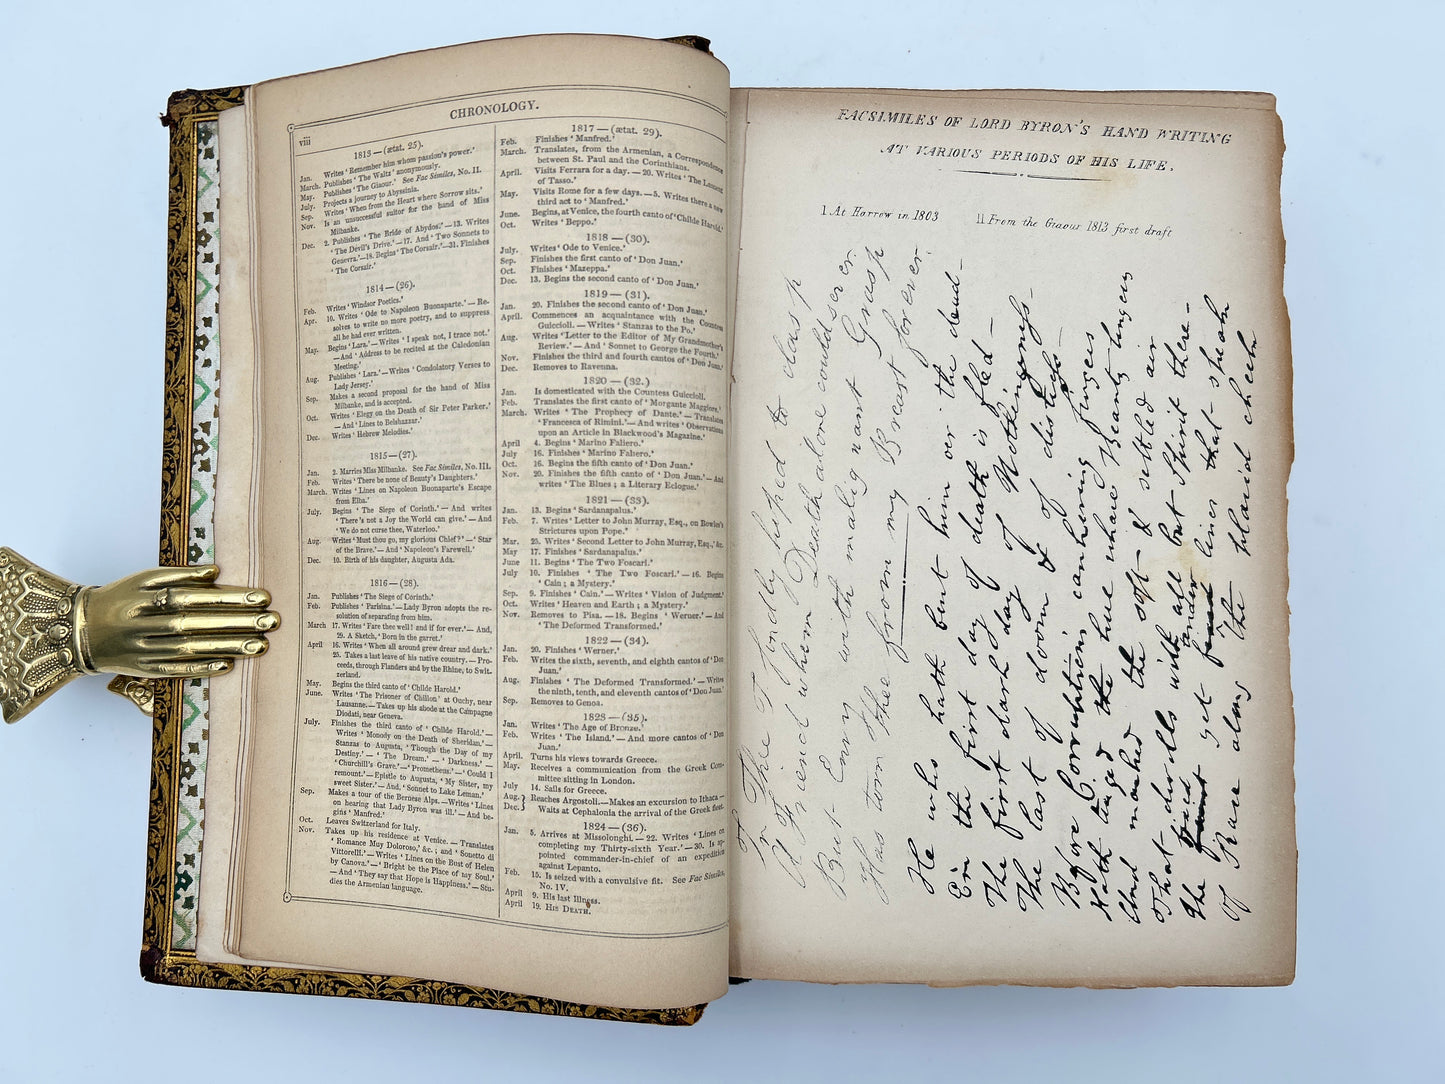 CHRONOLOGY.
viii
1813—(ætat. 25).
Jan. Writes 'Remember him whom passion's power.'
March. Publishes 'The Waltz' anonymously.
May. Publishes 'The Giaour.' See Fac Similes, No. II.
July. Projects a journey to Abyssinia.
Sep. Writes 'When from the Heart where Sorrow sits.'
Nov. Is an unsuccessful suitor for the hand of Miss
Milbanke.
Dec. 2. Publishes 'The Bride of Abydos.'—13. Writes
'The Devil's Drive.'—17. And 'Two Sonnets to
Genevra.'—18. Begins 'The Corsair.'—31. Finishes
'The Corsair.'
1814—(26).
Feb. Writes 'Windsor Poetics.'
Apr. 10. Writes 'Ode to Napoleon Buonaparte.'—Re-
solves to write no more poetry, and to suppress
all he had ever written.
May. Begins 'Lara.'—Writes 'I speak not, I trace not.'
—And 'Address to be recited at the Caledonian
Meeting.'
Aug. Publishes 'Lara.'—Writes 'Condolatory Verses to
Lady Jersey.'
Sep. Makes a second proposal for the hand of Miss
Milbanke, and is accepted.
Oct. Writes 'Elegy on the Death of Sir Peter Parker.'
—And 'Lines to Belshazzar.'
Dec. Writes 'Hebrew Melodies.'
1815—(27).
Jan. 2. Marries Miss Milbanke. See Fac Similes, No. III.
Feb. Writes 'There be none of Beauty's Daughters.'
March. Writes 'Lines on Napoleon Buonaparte's Escape
from Elba.'
July. Begins 'The Siege of Corinth.'—And writes
'There's not a Joy the World can give.'—And
'We do not curse thee, Waterloo.'
Aug. Writes 'Must thou go, my glorious Chief?'—'Star
of the Brave.'—And 'Napoleon's Farewell.'
Dec. 10. Birth of his daughter, Augusta Ada.
1816—(28).
Jan. Publishes 'The Siege of Corinth.'
Feb. Publishes 'Parisina.'—Lady Byron adopts the re-
solution of separating from him.
March 17. Writes 'Fare thee well! and if for ever.'—And,
29. A Sketch, 'Born in the garret.'
April 16. Writes 'When all around grew drear and dark.'
25. Takes a last leave of his native country.—Pro-
ceeds, through Flanders and by the Rhine, to Swit-
zerland.
May. Begins the third canto of 'Childe Harold.'
June. Writes 'The Prisoner of Chillon,' at Ouchy, near
Lausanne.—Takes up his abode at the Campagne
Diodati, near Geneva.
July. Finishes the third canto of 'Childe Harold.'—
Writes 'Monody on the Death of Sheridan.'—
Stanzas to Augusta, 'Though the Day of my
Destiny.'—'The Dream.'—'Darkness.'—
'Churchill's Grave.'—'Prometheus.'—'Could I
remount.'—Epistle to Augusta, 'My Sister, my
sweet Sister.'—And, 'Sonnet to Lake Leman.'
Sep. Makes a tour of the Bernese Alps.—Writes 'Lines
on hearing that Lady Byron was ill.'—And be-
gins 'Manfred.'
Oct. Leaves Switzerland for Italy.
Nov. Takes up his residence at Venice.—Translates
'Romance Muy Doloroso,' &c.; and 'Sonetto di
Vittorelli.'—Writes 'Lines on the Bust of Helen
by Canova.'—'Bright be the Place of my Soul.'
—And 'They say that Hope is Happiness.'—Stu-
dies the Armenian language.
1817—(ætat. 29).
Feb. Finishes 'Manfred.'
March. Translates, from the Armenian, a Correspondence
between St. Paul and the Corinthians.
April. Visits Ferrara for a day.—20. Writes 'The Lament
of Tasso.'
May. Visits Rome for a few days.—5. Writes there a new
third act to 'Manfred.'
June. Begins, at Venice, the fourth canto of 'Childe Harold.'
Oct. Writes 'Beppo.'
1818—(30).
July. Writes 'Ode to Venice.'
Sep. Finishes the first canto of 'Don Juan.'
Oct. Finishes 'Mazeppa.'
Dec. 13. Begins the second canto of 'Don Juan.'
1819—(31).
Jan. 20. Finishes the second canto of 'Don Juan.'
April. Commences an acquaintance with the Countess
Guiccioli.—Writes 'Stanzas to the Po.'
Aug. Writes 'Letter to the Editor of My Grandmother's
Review.'—And 'Sonnet to George the Fourth.'
Nov. Finishes the third and fourth cantos of 'Don Juan.'
Dec. Removes to Ravenna.
1820—(32.)
Jan. Is domesticated with the Countess Guiccioli.
Feb. Translates the first canto of 'Morgante Maggiore.'
March. Writes 'The Prophecy of Dante.'—Translates
'Francesca of Rimini.'—And writes 'Observations
upon an Article in Blackwood's Magazine.'
April 4. Begins 'Marino Faliero.'
July 16. Finishes 'Marino Faliero.'
Oct. 16. Begins the fifth canto of 'Don Juan.'
Nov. 20. Finishes the fifth canto of 'Don Juan.'—And
writes 'The Blues; a Literary Eclogue.'
1821—(33).
Jan. 13. Begins 'Sardanapalus.'
Feb. 7. Writes 'Letter to John Murray, Esq., on Bowles's
Strictures upon Pope.'
Mar. 25. Writes 'Second Letter to John Murray, Esq., &c.
May 17. Finishes 'Sardanapalus.'
June 11. Begins 'The Two Foscari.'
July 10. Finishes 'The Two Foscari.'—16. Begins
'Cain; a Mystery.'
Sep. 9. Finishes 'Cain.'—Writes 'Vision of Judgment.'
Oct. Writes 'Heaven and Earth; a Mystery.'
Nov. Removes to Pisa.—18. Begins 'Werner.'—And
'The Deformed Transformed.'
1822—(34).
Jan. 20. Finishes 'Werner.'
Feb. Writes the sixth, seventh, and eighth cantos of 'Don
Juan.'
Aug. Finishes 'The Deformed Transformed.'—Writes
the ninth, tenth, and eleventh cantos of 'Don Juan.'
Sep. Removes to Genoa.
1823—(35).
Jan. Writes 'The Age of Bronze.'
Feb. Writes 'The Island.'—And more cantos of 'Don
Juan.'
April. Turns his views towards Greece.
May. Receives a communication from the Greek Com-
mittee sitting in London.
July 14. Sails for Greece.
Aug. Reaches Argostoli.—Makes an excursion to Ithaca—
Dec. Waits at Cephalonia the arrival of the Greek fleet.
1824—(36).
Jan. 5. Arrives at Missolonghi.—22. Writes 'Lines on
completing my Thirty-sixth Year.'—30. Is ap-
pointed commander-in-chief of an expedition
against Lepanto.
Feb. 15. Is seized with a convulsive fit. See Fac Similes,
No. IV.
April 9. His last Illness.
April 19. HIS DEATH.
FACSIMILES OF LORD BYRON'S HAND WRITING
AT VARIOUS PERIODS OF HIS LIFE.
I At Harrow in 1803
II From the Giaour 1813 first draft
In Thee I fondly hoped to clasp
A Friend whom Death alone could sever
But Envy with malignant Grasp
Has torn thee from my Breast for ever
He who hath bent him oer the dead—
Ere the first day of death is fled—
The first dark day of Nothingness—
The last of doom & of distress—
Before Corruption's cankering fingers
Hath tinged the hue where Beauty lingers
And marked the soft & settled air
That dwells with all but Spirit there—
The fixed yet tender lines that streak
Of Peace along the placid cheek